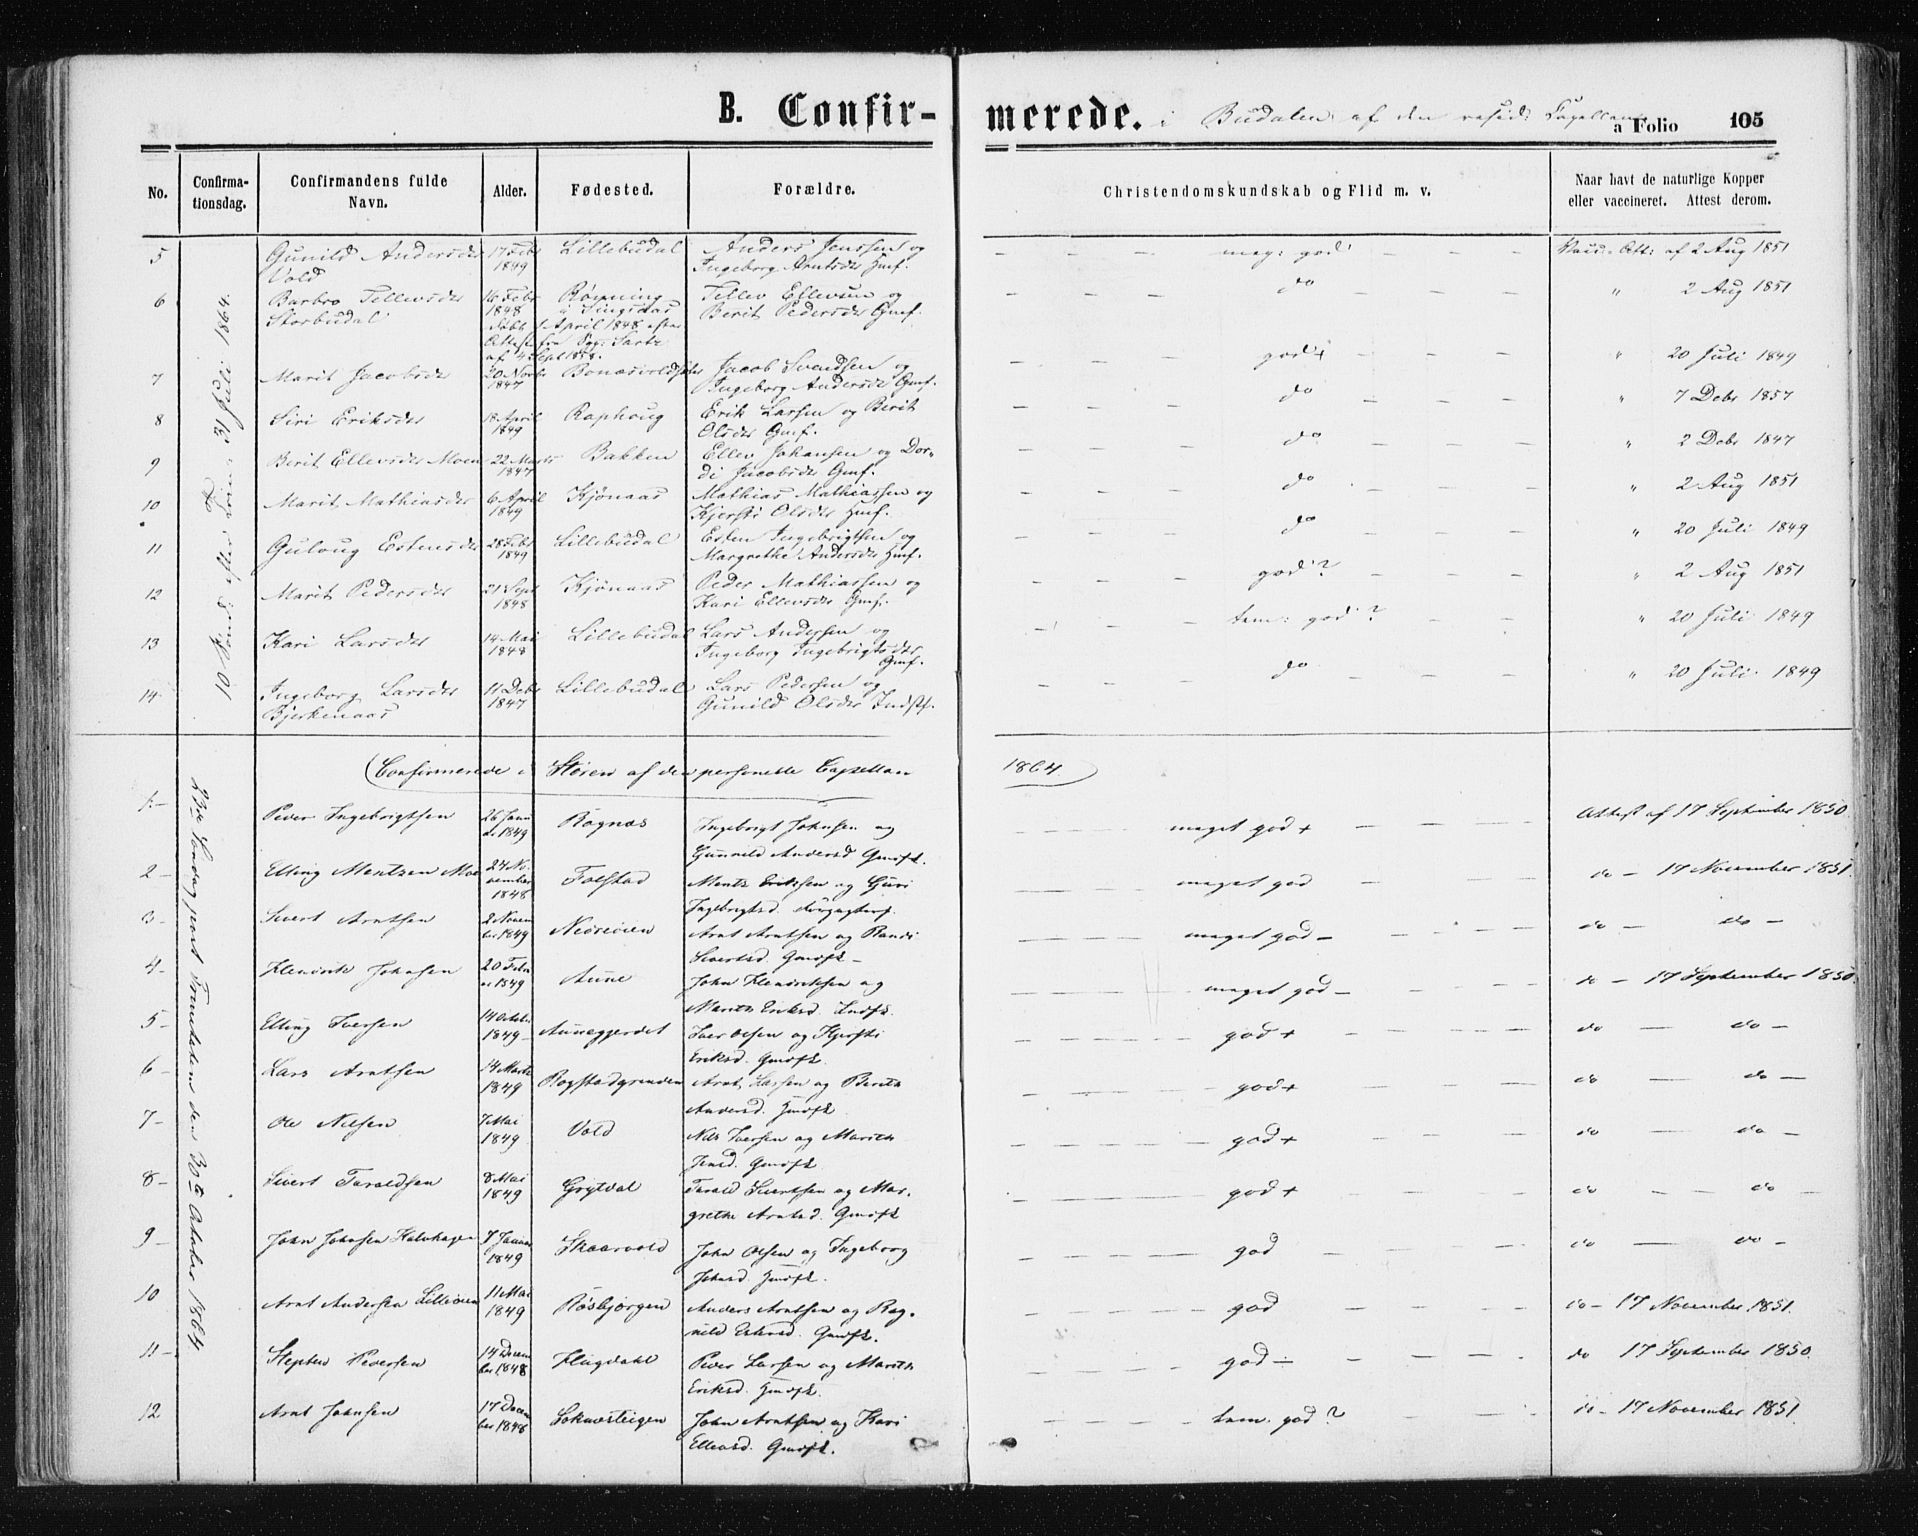 B. Confir-
merede. i Budalen af den resid: Capellan
a Folio 105
No. Confirma-tionsdag. Confirmandens fulde Navn. Alder. Fødested. Forældre. Christendomskundskab og Flid m. v. Naar havt de naturlige Kopper eller vaccineret. Attest derom.
10 Sønd: efter Trin: 31 Juli 1864.
5 Gunild Andersdr 17 Febr Lillebudal Anders Jenssen og — — — mag: god — — — Vacc. Att: af 2 Aug 1851
Vold 1849 Ingeborg Arntsdr Hmf.
6 Barbro Tellevsdr 16 Febr Rønning Tellev Ellevsen og — — — do — — — " 2 Aug 1851
Storbudal 1848 i Singsaas Berit Pedersdr Gmf.
Døbt 1 April 1848 efter
Attest fra
af 4 Sept 1858.
7 Marit Jacobsdr 20 Novbr Bonæsvold Jacob Svendsen og — — — god+ — — — " 20 Juli 1849
1847 Ingeborg Andersdr Gmf.
8 Siri Eriksdr 18 April Raphoug Erik Larsen og Berit — — — do — — — " 7 Debr 1857
1849 Olsdr Gmf.
9 Berit Ellevsdr Moen 22 Marts Bakken Ellev Johansen og Dor- — — — do — — — " 2 Debr 1847
1847 di Jacobsdr Gmf.
10 Marit Mathiasdr 6 April Kjønaas Mathias Mathiassen og — — — do — — — " 2 Aug 1851
1849 Kjersti Olsdr Hmf.
11 Guloug Estensdr 28 Febr Lillebudal Esten Ingebrigtsen og — — — do — — — " 20 Juli 1849
1849 Margrethe Andersdr Hmf.
12 Marit Pedersdr 21 Sept Kjønaas Peder Mathiassen og — — — god? — — — " 2 Aug 1851
1848 Kari Ellevsdr Gmf.
13 Kari Larsdr 14 Mai Lillebudal Lars Andersen og — — — tem: god? — — " 20 Juli 1849
1848 Ingeborg Ingebrigtsdr
Gmf.
14 Ingeborg Larsdr 11 Debr Lillebudal Lars Pedersen og — — — do — — — " 20 Juli 1849
Bjerkenaas 1847 Gunild Olsdr Indstf.
Confirmerede i Støren af den personelle Capellan 1864
23de Søndag post Trinitatem den 30te October 1864
1 — Peder Ingebrigtsen 26 Janu Rognæs Ingebrigt Johnsen og — — — meget god + — — — Attest af 17 September 1850.
ar 1849 Gunnild Andersd Gmofk.
2 — Elling Mentzen Moe 24 No- Folstad Mentz Erikssen og Guri — — — meget god — — — do — 17 November 1851.
vember 1848 Ingebrigtsd.
3 — Sivert Arntsen 2 Novem Arnt Arntsen og Randi — — — meget god — — — — do — do —
ber 1849 Sivertsd. Gmofk —
4 — Hendrik Johnsen 20 Febru Aune John Hendriksen og — — — meget god — — — — do — 17 September 1850.
ar 1849 Marith Eriksd. Indfk.
5 — Elling Iversen 14 October Aunegjerdet Iver Olsen og Kjersti — — — god + — — — do do —
1849 — Eriksd. Gmofk
6 — Lars Arntsen 14 Marts Rogstadgrenden Arnt Larsen og Berith — — — god + — — — do — do —
1849 Andersd. Hmofk
7 — Ole Nilsen 7 Mai Vold Nils Iversen og Marith — — — god + — — — do — do —
1849 Jensd. Gmofk
8 — Sivert Taraldsen 8 Mai Grytdal Tarald Sivertsen og Mar- — — — god + — — — do — — do —
1849 grethe Arntsd. Gmofk
9 — John Johnsen Kalvhagen 7 Januar Skaarvold John Olsen og Ingeborg — — — god — — — do — do —
1849 Johnsd. Hmofk.
10 Arnt Andersen Lilleøien 11 Mai Røsbjørgen Anders Arntsen og Rag- — — — god — — — do — 17 November 1851.
1849 nild Estensd. Gmofk.
11 — Stephen Pedersen 14 Decem Hugdahl Peder Larsen og Marith — — — god — — — — do 17 September 1850.
ber 1848 Eriksd. Hmofk.
12 Arnt Johnsen 17 Decem Soknesteigen John Arntsen og Kari — — — tem. god? — — — do — 17 November 1851.
ber 1848 Ellevsd. Gmofk.